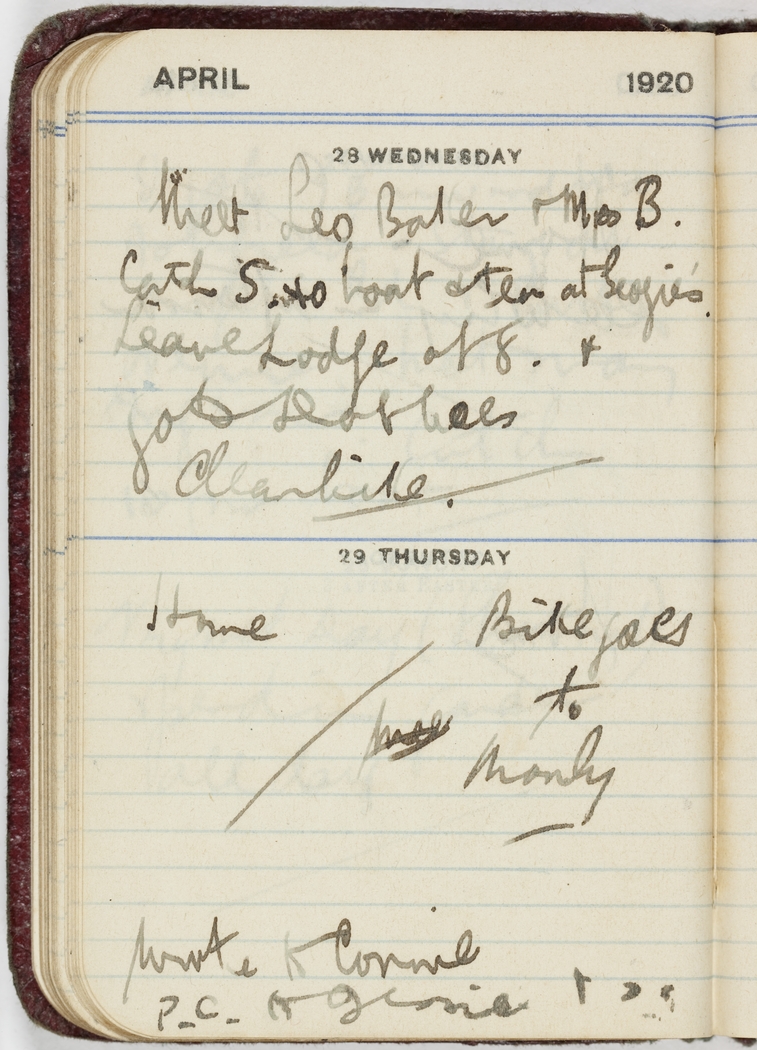 APRIL 1920
28 WEDNESDAY
Meet Leo Baker & Mrs B.
Catch 5.40 boat & tea at Georgie's.
Leave Lodge at 8. &
go to
Clean bike.
29 THURSDAY
Home Bike goes
to
Manly
Wrote to Connie
P.C. to Jessie